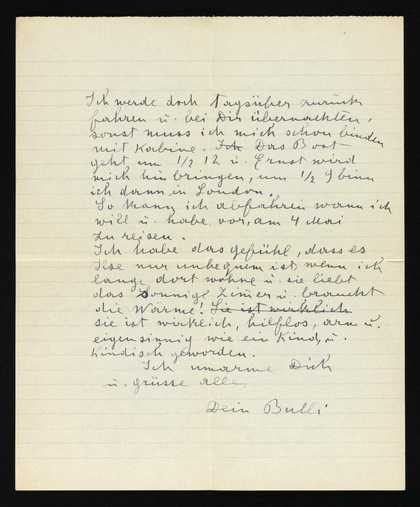 Ich werde doch tagsüber zurück
fahren u. bei Dir übernachten,
sonst muss ich mich schon binden
mit Kabine. Ich Das Boot
geht um 1/2 12 u. Ernst wird
mich hinbringen, um 1/2 9 binn
ich dann in London.
So kann ich abfahren wann ich
will u. habe vor, am 4 Mai
zu reisen.
Ich habe das gefühl, dass es
Ilse nur unbequem ist, wenn ich
lange dort wohne u. sie liebt
das Sonnige Zimer u. braucht
die Wärme. Sie ist wirklich
sie ist wirklich, hilflos, arm u.
eigensinnig wie ein Kind, u.
Kindisch geworden.
Ich umarme Dich
u. grüsse alle,
Dein Bulli